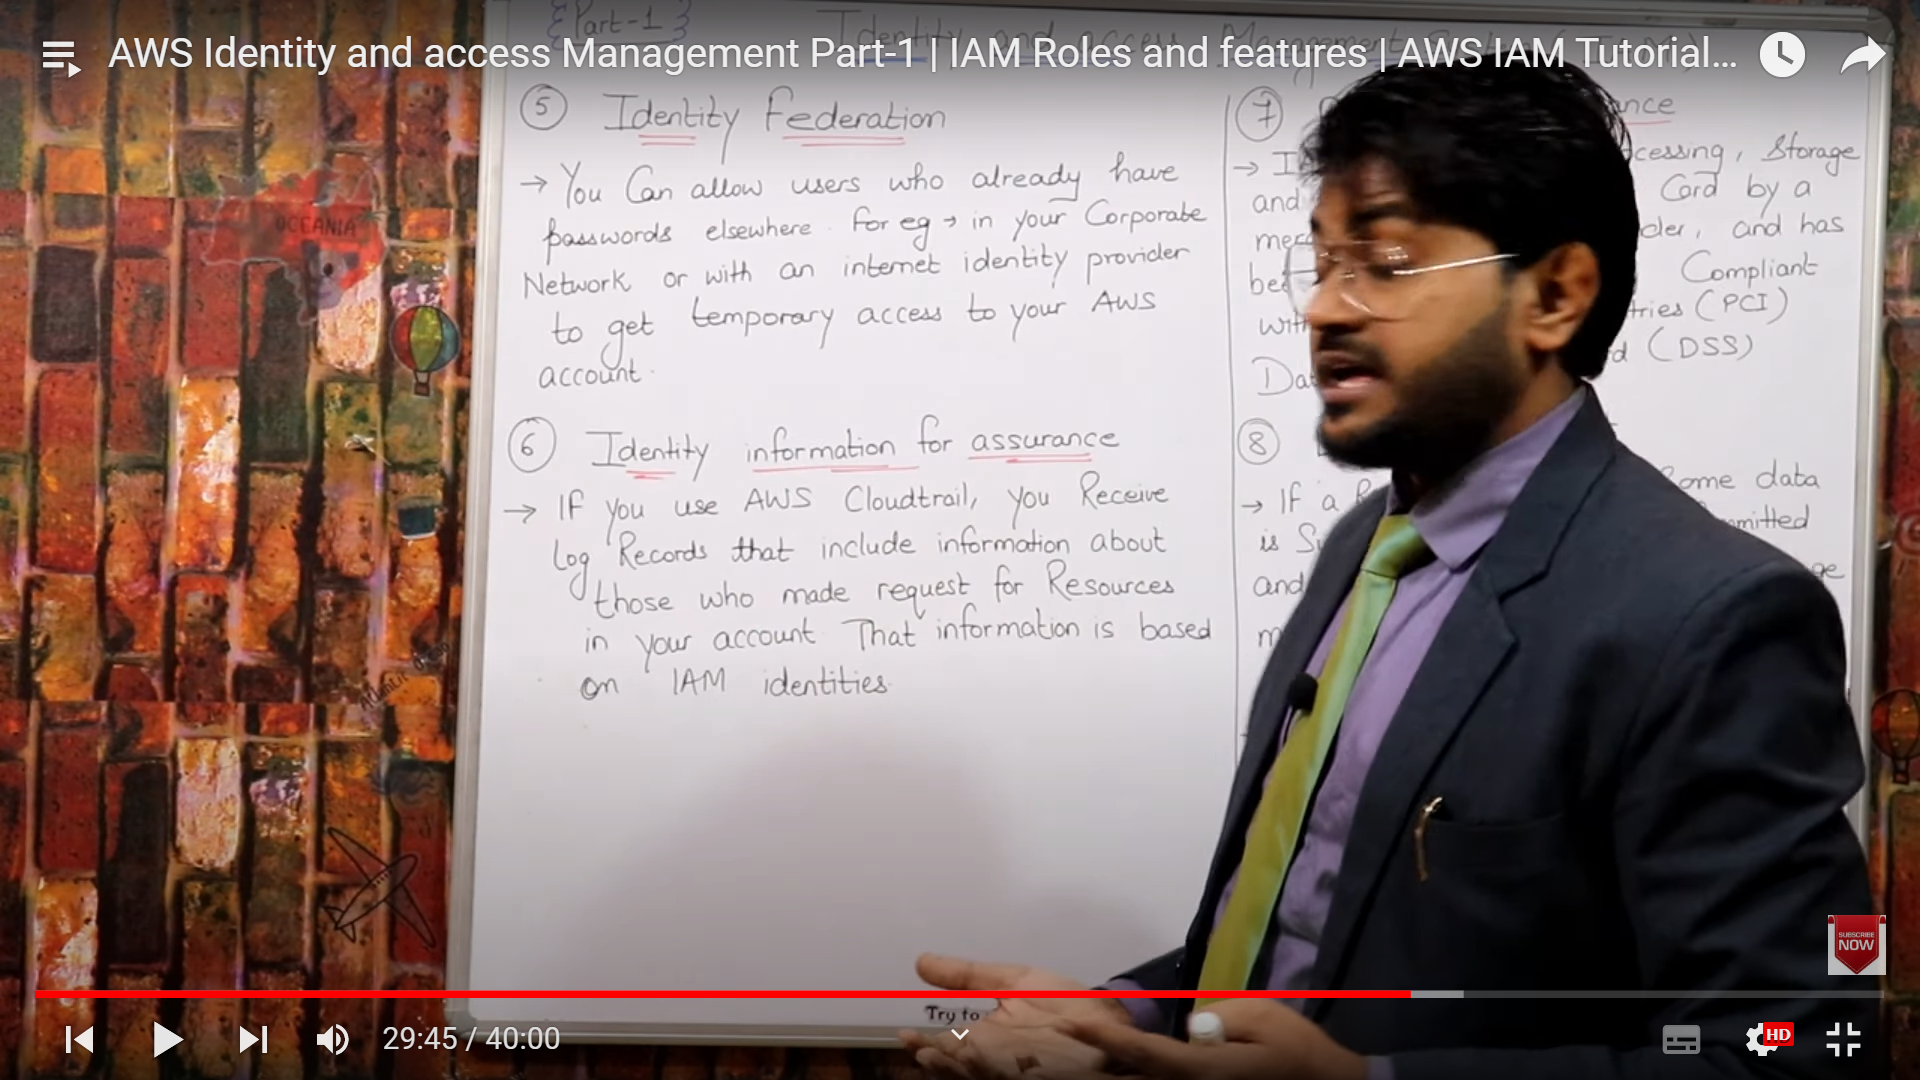 {Part-1}
Identity and access Management
AWS Identity and access Management Part-1 | IAM Roles and features | AWS IAM Tutorial...
5 Identity Federation
→ You Can allow users who already have
passwords elsewhere. For eg → in your Corporate
Network or with an internet identity provider
to get temporary access to your AWS
account.
6 Identity information for assurance
→ IF you use AWS Cloudtrail, you Receive
Log Records that include information about
those who made request for Resources
in your account. That information is based
on IAM identities.
7
→ Storage
and Card by a
and has
Compliant
(PCI)
(DSS)
8
→ If a Some data
is
and
OCEANIA
SUBSCRIBE
NOW
Try to
29:45 / 40:00
HD